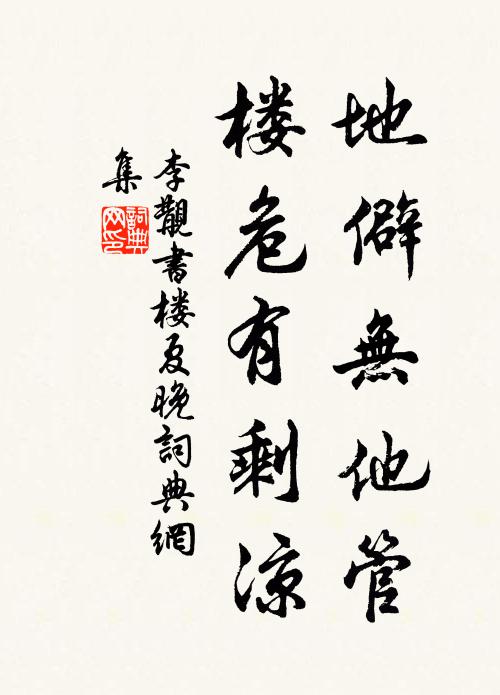 地僻無他管
楼危有剩凉
李觏書楼夏晚詞典網
集
詞典
网印